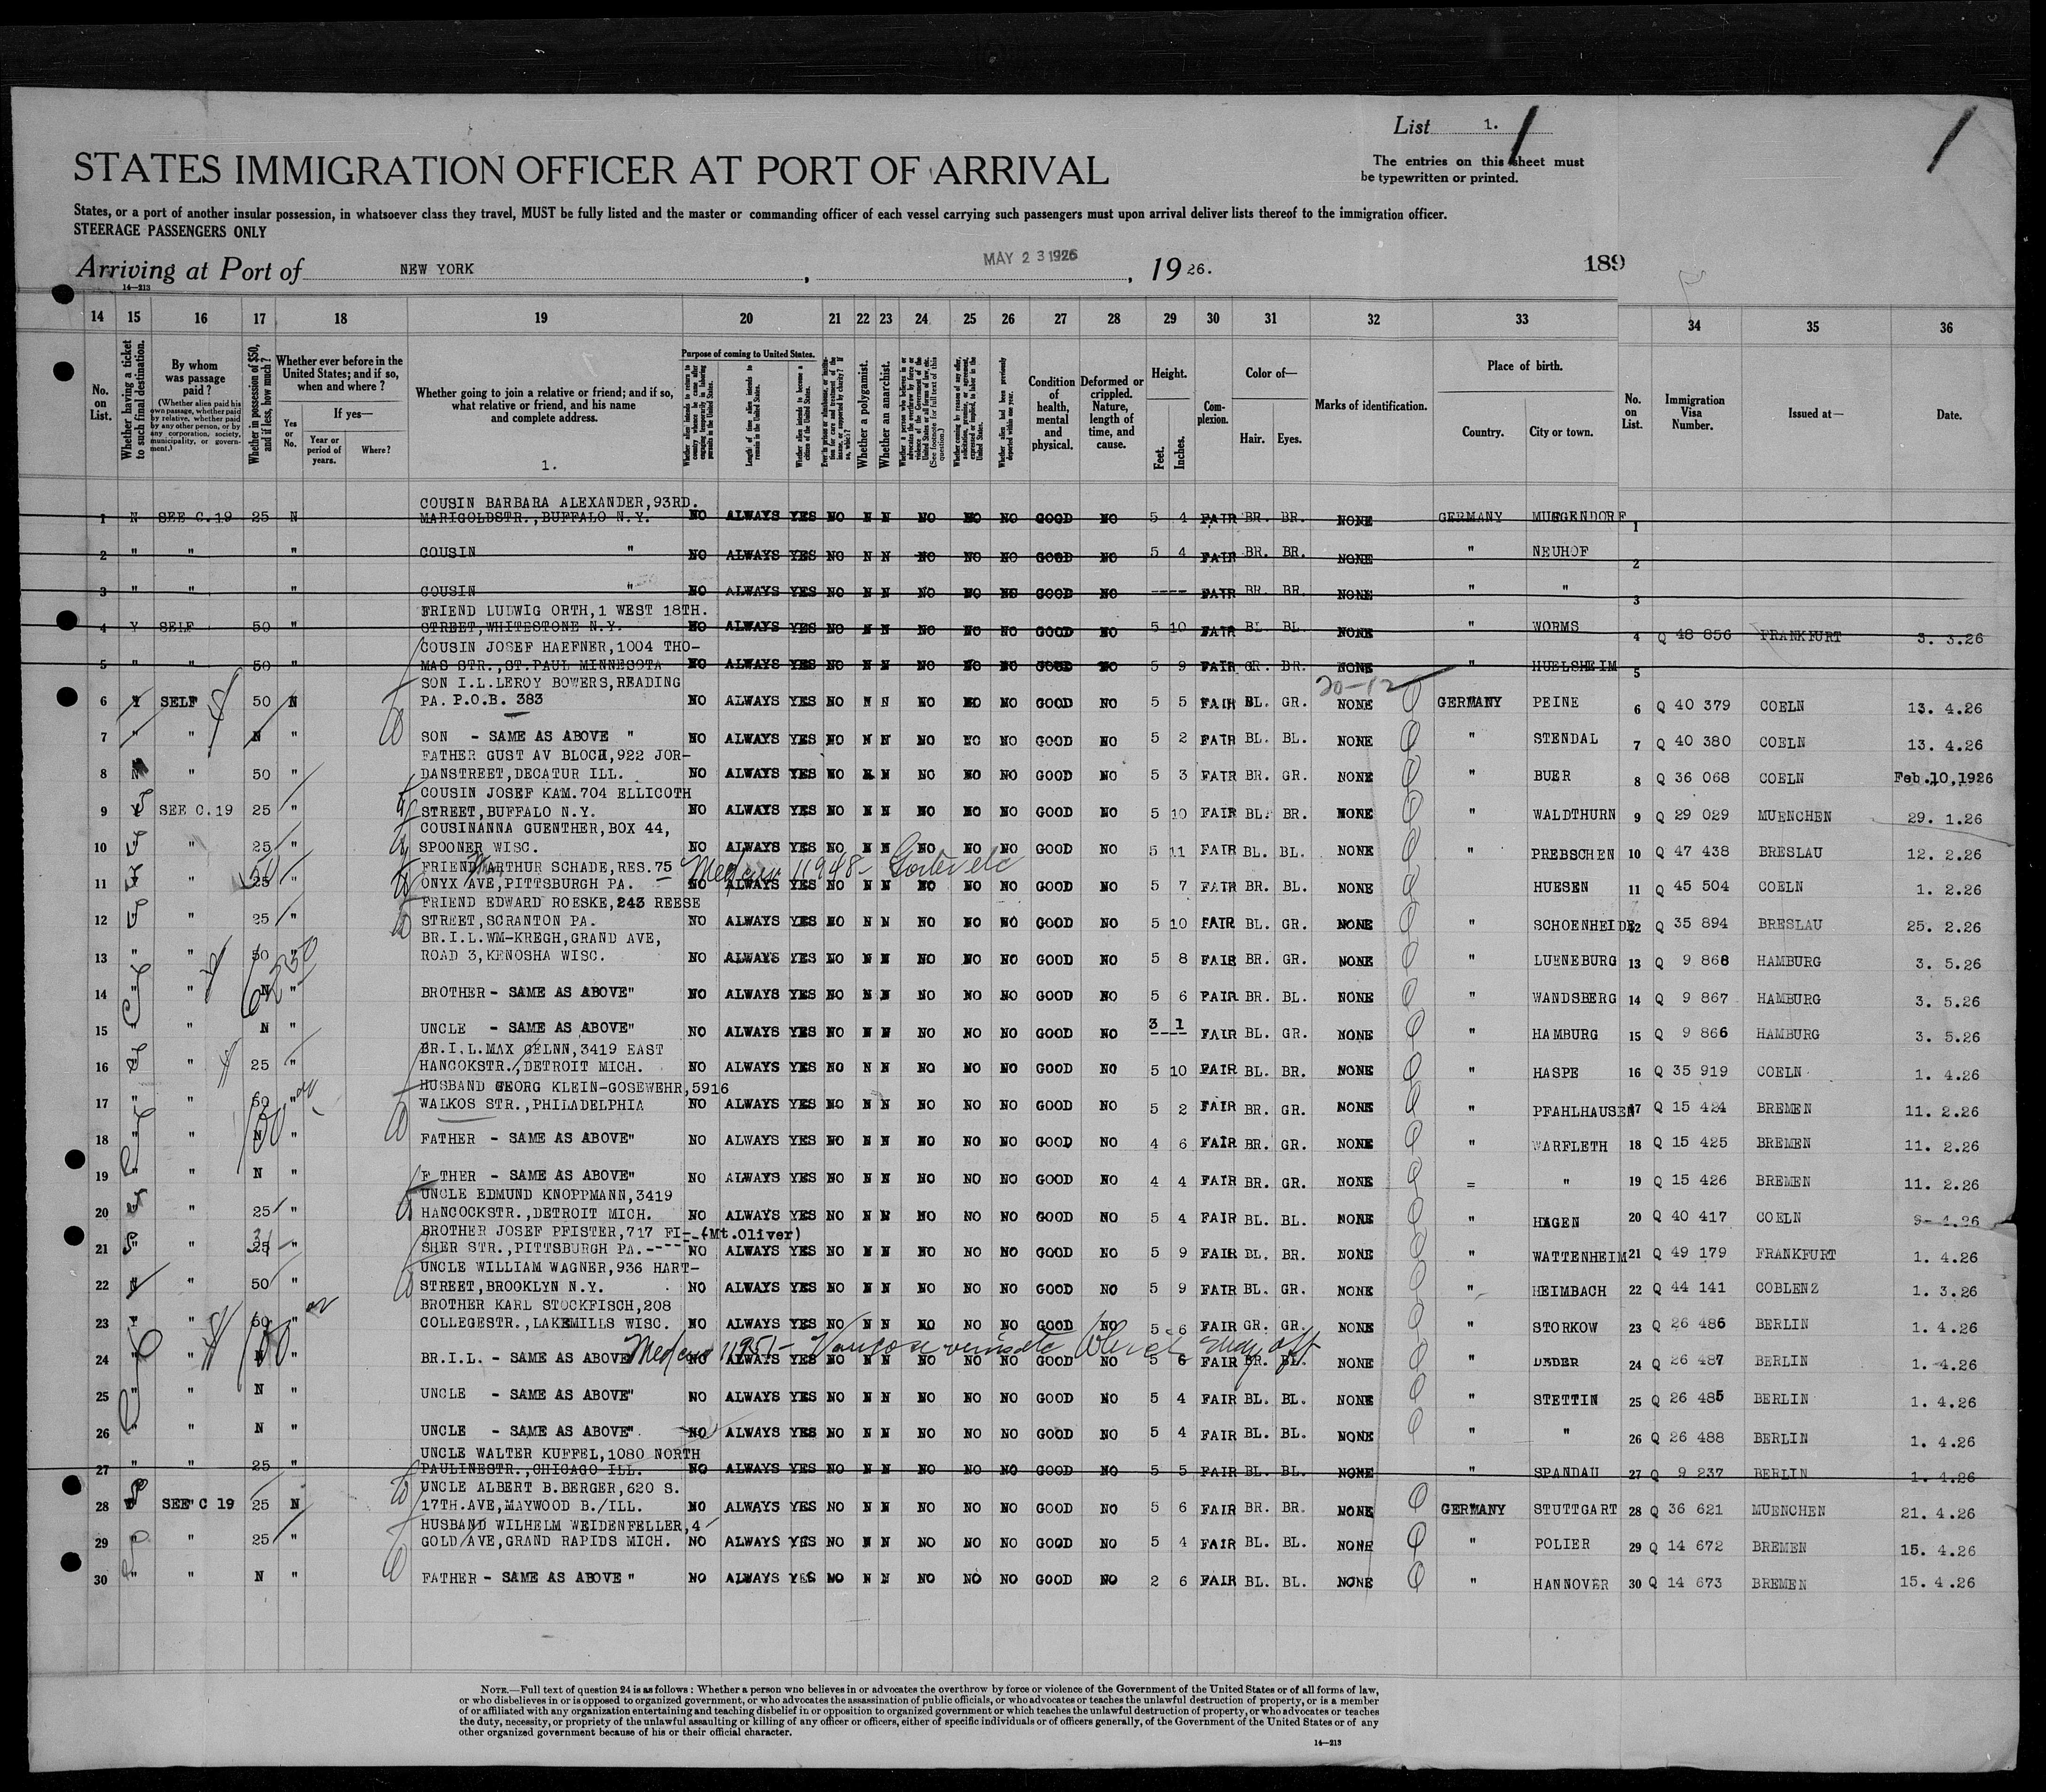 List 1.
The entries on this sheet must
be typewritten or printed.
STATES IMMIGRATION OFFICER AT PORT OF ARRIVAL
States, or a port of another insular possession, in whatsoever class they travel, MUST be fully listed and the master or commanding officer of each vessel carrying such passengers must upon arrival deliver lists thereof to the immigration officer.
STEERAGE PASSENGERS ONLY
Arriving at Port of NEW YORK, MAY 23 1926, 1926. 189
14—213
14 15 16 17 18 19 20 21 22 23 24 25 26 27 28 29 30 31 32 33 34 35 36
No. on List.
Whether having a ticket to such final destination.
By whom was passage paid?
(Whether alien paid his own passage, whether paid by relative, whether paid by any other person, or by any corporation, society, municipality, or government.)
Whether in possession of $50, and if less, how much?
Whether ever before in the United States; and if so, when and where?
Yes or No.
If yes—
Year or period of years.
Where?
Whether going to join a relative or friend; and if so, what relative or friend, and his name and complete address.
1.
Purpose of coming to United States.
Length of time alien intends to remain in the United States.
Whether alien intends to become a citizen of the United States.
Whether a polygamist.
Whether an anarchist.
Condition of health, mental and physical.
Deformed or crippled. Nature, length of time, and cause.
Height.
Feet. Inches.
Complexion.
Color of—
Hair. Eyes.
Marks of identification.
Place of birth.
Country. City or town.
No. on List.
Immigration Visa Number.
Issued at—
Date.
COUSIN BARBARA ALEXANDER,93RD.
1 N SEE C.19 25 N MARIGOLDSTR.,BUFFALO N.Y. NO ALWAYS YES NO N N NO NO NO GOOD NO 5 4 FAIR BR. BR. NONE GERMANY MUGGENDORF 1
2 " " " COUSIN " NO ALWAYS YES NO N N NO NO NO GOOD NO 5 4 FAIR BR. BR. NONE " NEUHOF 2
3 " " " COUSIN " NO ALWAYS YES NO N N NO NO NO GOOD NO ---- FAIR BR. BR. NONE " " 3
FRIEND LUDWIG ORTH,1 WEST 18TH.
4 Y SELF 50 " STREET,WHITESTONE N.Y. NO ALWAYS YES NO N N NO NO NO GOOD NO 5 10 FAIR BL. BL. NONE " WORMS 4 Q 48 856 FRANKFURT 3. 3.26
COUSIN JOSEF HAEFNER,1004 THO-
5 " " 50 " MAS STR.,ST.PAUL MINNESOTA NO ALWAYS YES NO N N NO NO NO GOOD NO 5 9 FAIR GR. BR. NONE " HUELSHEIM 5
SON I.L.LEROY BOWERS,READING 20-12
6 Y SELF 50 N PA. P.O.B. 383 NO ALWAYS YES NO N N NO NO NO GOOD NO 5 5 FAIR BL. GR. NONE GERMANY PEINE 6 Q 40 379 COELN 13. 4.26
7 " " N " SON - SAME AS ABOVE " NO ALWAYS YES NO N N NO NO NO GOOD NO 5 2 FAIR BL. BL. NONE " STENDAL 7 Q 40 380 COELN 13. 4.26
FATHER GUST AV BLOCH,922 JOR-
8 N " 50 " DANSTREET,DECATUR ILL. NO ALWAYS YES NO N N NO NO NO GOOD NO 5 3 FAIR BR. GR. NONE " BUER 8 Q 36 068 COELN Feb.10,1926
COUSIN JOSEF KAM.704 ELLICOTH
9 SEE C.19 25 " STREET,BUFFALO N.Y. NO ALWAYS YES NO N N NO NO NO GOOD NO 5 10 FAIR BL. BR. NONE " WALDTHURN 9 Q 29 029 MUENCHEN 29. 1.26
COUSINANNA GUENTHER,BOX 44,
10 " 25 " SPOONER WISC. NO ALWAYS YES NO N N NO NO NO GOOD NO 5 11 FAIR BL. BL. NONE " PREBSCHEN 10 Q 47 438 BRESLAU 12. 2.26
FRIEND ARTHUR SCHADE,RES.75 Med cer 11948- Goiter etc
11 " 25 50 " ONYX AVE,PITTSBURGH PA. NO ALWAYS YES NO N N NO NO NO GOOD NO 5 7 FAIR BR. BL. NONE " HUESEN 11 Q 45 504 COELN 1. 2.26
FRIEND EDWARD ROESKE,243 REESE
12 " 25 " STREET,SCRANTON PA. NO ALWAYS YES NO N N NO NO NO GOOD NO 5 10 FAIR BL. GR. NONE " SCHOENHEIDE 12 Q 35 894 BRESLAU 25. 2.26
BR.I.L.WM-KREGH,GRAND AVE,
13 " " 50 " ROAD 3,KENOSHA WISC. NO ALWAYS YES NO N N NO NO NO GOOD NO 5 8 FAIR BR. GR. NONE " LUENEBURG 13 Q 9 868 HAMBURG 3. 5.26
14 " " N " BROTHER - SAME AS ABOVE" NO ALWAYS YES NO N N NO NO NO GOOD NO 5 6 FAIR BR. BL. NONE " WANDSBERG 14 Q 9 867 HAMBURG 3. 5.26
15 " " N " UNCLE - SAME AS ABOVE" NO ALWAYS YES NO N N NO NO NO GOOD NO 3 1 FAIR BL. GR. NONE " HAMBURG 15 Q 9 866 HAMBURG 3. 5.26
BR.I.L.MAX GELNN,3419 EAST
16 " 25 " HANCOKSTR.,DETROIT MICH. NO ALWAYS YES NO N N NO NO NO GOOD NO 5 10 FAIR BL. BR. NONE " HASPE 16 Q 35 919 COELN 1. 4.26
HUSBAND GEORG KLEIN-GOSEWEHR,5916
17 " " 50 " WALKOS STR.,PHILADELPHIA NO ALWAYS YES NO N N NO NO NO GOOD NO 5 2 FAIR BR. GR. NONE " PFAHLHAUSEN 17 Q 15 424 BREMEN 11. 2.26
18 " " N " FATHER - SAME AS ABOVE" NO ALWAYS YES NO N N NO NO NO GOOD NO 4 6 FAIR BR. GR. NONE " WARFLETH 18 Q 15 425 BREMEN 11. 2.26
19 " " N " F THER - SAME AS ABOVE" NO ALWAYS YES NO N N NO NO NO GOOD NO 4 4 FAIR BR. GR. NONE = " 19 Q 15 426 BREMEN 11. 2.26
UNCLE EDMUND KNOPPMANN,3419
20 " 25 " HANCOCKSTR.,DETROIT MICH. NO ALWAYS YES NO N N NO NO NO GOOD NO 5 4 FAIR BL. BL. NONE " HAGEN 20 Q 40 417 COELN 9- 4.26
BROTHER JOSEF PFISTER,717 FI--(Mt.Oliver)
21 " " 25 " SHER STR.,PITTSBURGH PA.---- NO ALWAYS YES NO N N NO NO NO GOOD NO 5 9 FAIR BL. BR. NONE " WATTENHEIM 21 Q 49 179 FRANKFURT 1. 4.26
UNCLE WILLIAM WAGNER,936 HART-
22 N " 50 " STREET,BROOKLYN N.Y. NO ALWAYS YES NO N N NO NO NO GOOD NO 5 9 FAIR BL. GR. NONE " HEIMBACH 22 Q 44 141 COBLENZ 1. 3.26
BROTHER KARL STOCKFISCH,208
23 Y " 50 " COLLEGESTR.,LAKEMILLS WISC. NO ALWAYS YES NO N N NO NO NO GOOD NO 5 6 FAIR GR. GR. NONE " STORKOW 23 Q 26 486 BERLIN 1. 4.26
Med cer 11951- Varicose veins etc
24 " " N " BR.I.L. - SAME AS ABOVE NO ALWAYS YES NO N N NO NO NO GOOD NO 5 6 FAIR BR. BL. NONE " 24 Q 26 487 BERLIN 1. 4.26
25 " " N " UNCLE - SAME AS ABOVE" NO ALWAYS YES NO N N NO NO NO GOOD NO 5 4 FAIR BL. BL. NONE " STETTIN 25 Q 26 485 BERLIN 1. 4.26
26 " " N " UNCLE - SAME AS ABOVE" NO ALWAYS YES NO N N NO NO NO GOOD NO 5 4 FAIR BL. BL. NONE " " 26 Q 26 488 BERLIN 1. 4.26
UNCLE WALTER KUFFEL,1080 NORTH
27 " " 25 " PAULINESTR.,CHICAGO ILL. NO ALWAYS YES NO N N NO NO NO GOOD NO 5 5 FAIR BL. BL. NONE " SPANDAU 27 Q 9 237 BERLIN 1. 4.26
UNCLE ALBERT B.BERGER,620 S.
28 SEE C 19 25 N 17TH.AVE,MAYWOOD B./ILL. NO ALWAYS YES NO N N NO NO NO GOOD NO 5 6 FAIR BR. BR. NONE GERMANY STUTTGART 28 Q 36 621 MUENCHEN 21. 4.26
HUSBAND WILHELM WEIDENFELLER,4
29 " " 25 " GOLD AVE,GRAND RAPIDS MICH. NO ALWAYS YES NO N N NO NO NO GOOD NO 5 4 FAIR BL. BL. NONE " POLIER 29 Q 14 672 BREMEN 15. 4.26
30 " " N " FATHER - SAME AS ABOVE " NO ALWAYS YES NO N N NO NO NO GOOD NO 2 6 FAIR BL. BL. NONE " HANNOVER 30 Q 14 673 BREMEN 15. 4.26
NOTE.—Full text of question 24 is as follows: Whether a person who believes in or advocates the overthrow by force or violence of the Government of the United States or of all forms of law,
or who disbelieves in or is opposed to organized government, or who advocates the assassination of public officials, or who advocates or teaches the unlawful destruction of property, or is a member
of or affiliated with any organization entertaining and teaching disbelief in or opposition to organized government or which teaches the unlawful destruction of property, or who advocates or teaches
the duty, necessity, or propriety of the unlawful assaulting or killing of any officer or officers, either of specific individuals or of officers generally, of the Government of the United States or of any
other organized government because of his or their official character.
14—213